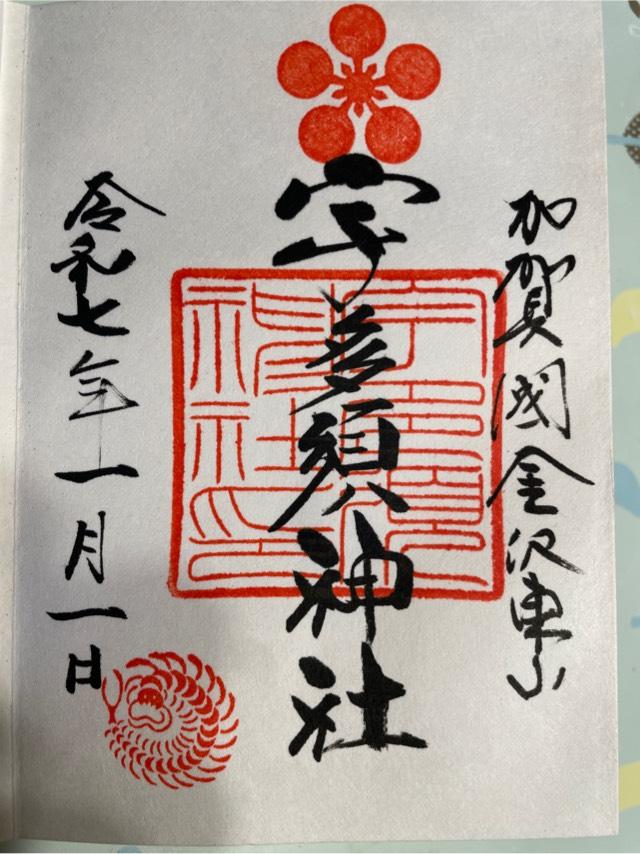 加賀國金沢東山
宇多須神社
令和七年一月一日